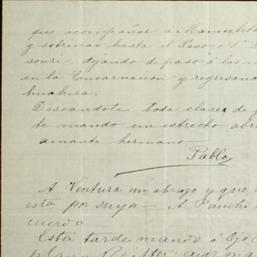 que acompañar á Manuelita
y sobrinas hasta el Paso T
souri, dejando de paso á las
en la Encarnacion y regresando
huahera.
Deseandote toda clase de
te mando un estrecho abra
amante hermano
Pablo
A Ventura un abrazo y que
está por suya — A Pancho
cuerdo
Esta tarde mando á
plan